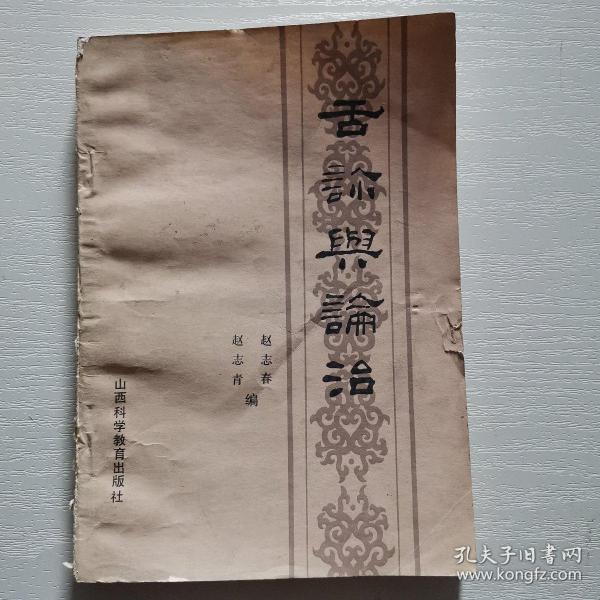 舌診與論治
赵志春
赵志肯
编
山西科学教育出版社
孔夫子旧书网
www.kongfz.com